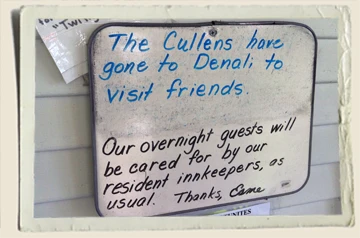 "Twi
The Cullens have
gone to Denali to
visit friends.
Our overnight guests will
be cared for by our
resident innkeepers, as
usual. Thanks, Esme